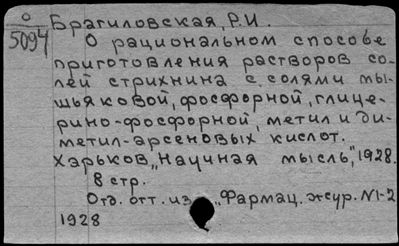 О
5094
Брагиловская, Р.И.
О рациональном способе
приготовления растворов со-
лей стрихнина с солями мы-
шьяковой, фосфорной, глице-
рино-фосфорной, метил и ди-
метил-арсеновых кислот.
Харьков, „Научная мысль", 1928.
8 стр.
Отд. отт. из „Фармац. жур. N1-2
1928